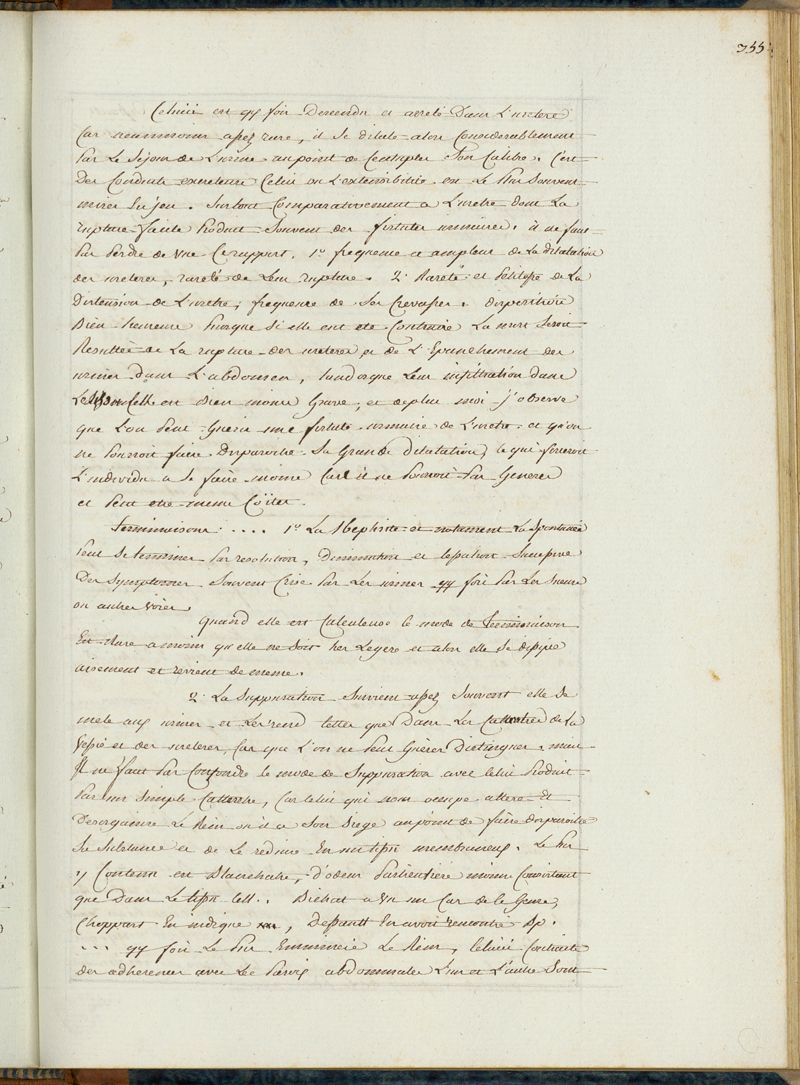 355.
Celuici est qq fois Descendu et arreté Dans L'uretere
Car neanmoins assez rare, il se dilate alors Considerablement
par Le Sejour de L'urine au point de Centupler Son Calibre. C'est
Des Conduits excreteurs Celui où L'extensibilité est Le plus Souvent
mise en jeu. Surtout Comparativement a L'uretre dont La
rupture facile produit Souvent des fistules urinaires. il ne faut
pas perdre de vue Ce rapport. 1º frequence et ampleur de La dilatation
des ureteres, rareté de Leur rupture. 2º Rareté et petitesse de La
Distension de L'uretre, frequence de Ses Crevasses. disposition
Bien heureuse puisque Si elle eut eté Contraire La mort Seroit
Resultée de La rupture des ureteres et de L'Epanchement des
urines dans L'abdomen, tandisque Leur infiltration dans
Le tissu Cell. est Bien moins Grave, et de plus moi j'observe
que L'on peut Guerir une fistule urinaire de L'uretre et qu'on
ne pourroit faire Disparoitre Sa Grande dilatation, ce qui forceroit
L'individu a Se faire moine Car il ne pourroit pas Generer
et peut etre meme Coïter.
Terminaisons : .... 1º La Nephrite et notament La Spontanée
peut Se terminer par resolution, Diminution et Cessation Successive
Des Symptomes Souvent Crise par Les urines qq fois par Les Sueurs
ou autres voies.
Quand elle est Calculeuse le mode de Terminaison
Est Rare a moins qu'elle ne Soit tres Legere et alors elle Se dissipe
aisement et revient de meme.
2º La Suppuration Survient assez Souvent elle Se
mele aux urines et Les rend telles que Dans Les Catarrhes de La
Vessie et des ureteres, Car que L'on ne peut Guères Distinguer. mais
Il ne faut pas Confondre le mode de Suppuration avec Celui produit
par un Simple Catarrhe, Car Celui qui nous occupe altere et
Desorganise Le Rein où il a Son Siege au point de faire disparoitre
Sa Substance et de Le reduire En un tissu membraneux. Le pus
y Contenu est Blanchatre, d'odeur particuliere moins Consistant
que Dans Le tissu Cell. Bichat a Vu un Cas de Ce Genre,
Choppart En indique , Dessault En avoit rencontré
... qq fois Le pus Environne Le Rein, Celuici Contracte
des adherences avec Les parois abdominales L'un et L'autre Sont